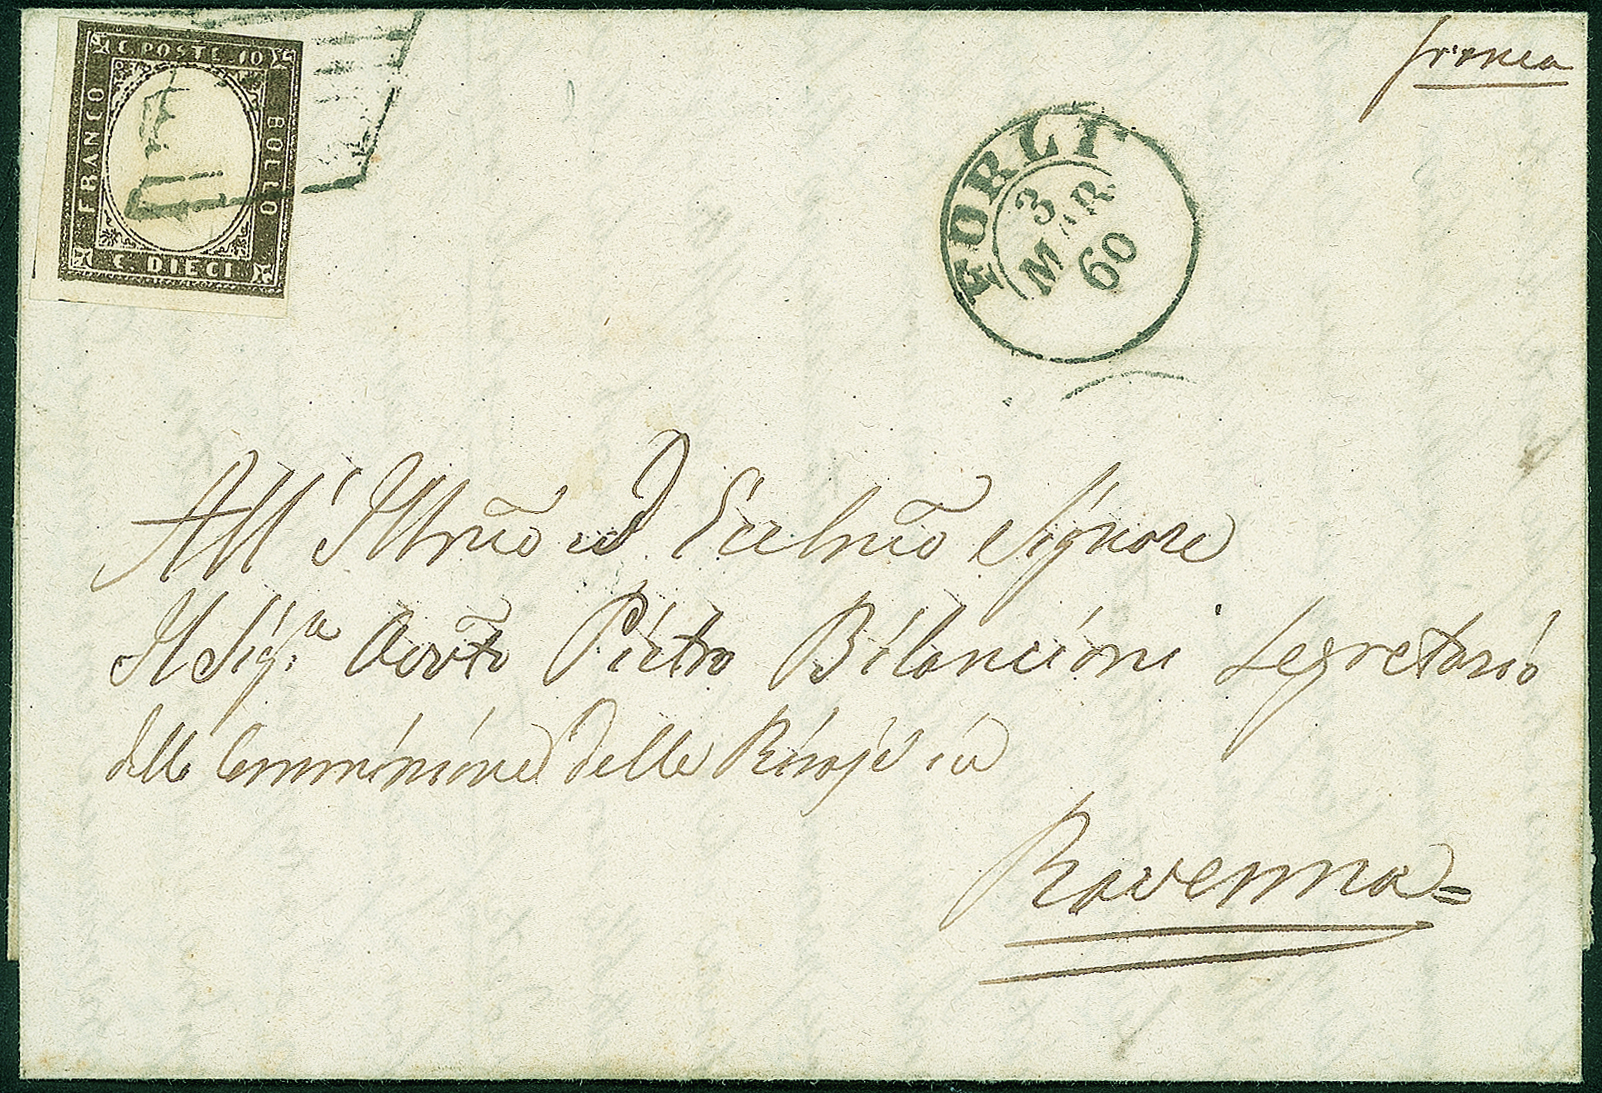 C. POSTE 10
FRANCO
BOLLO
C. DIECI
franca
FORLÌ
3
MAR
60
All' Illmo ed Eccellmo Signore
Il Sig.r Pietro Bilancioni Segretario
della Commissione delle in
Ravenna=